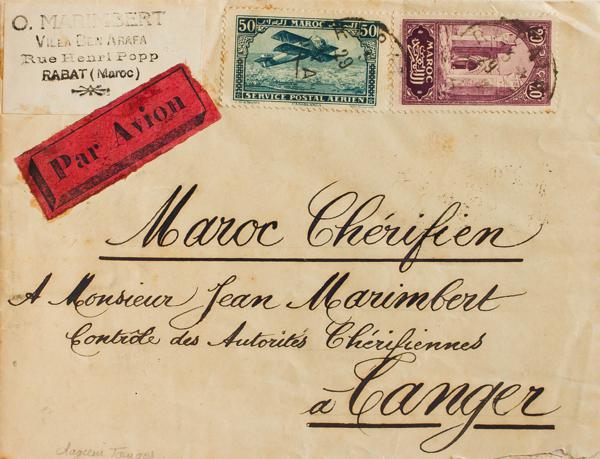 O. MARIMBERT
VILLA BEN ARAFA
Rue Henri Popp
RABAT (Maroc)
50 MAROC 50
SERVICE POSTAL AÉRIEN
20 MAROC 20
Par Avion
Maroc Chérifien
A Monsieur Jean Marimbert
Contrôle des Autorités Chérifiennes
à Tanger